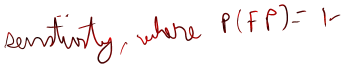 sensitivity, where P(FP) = 1-